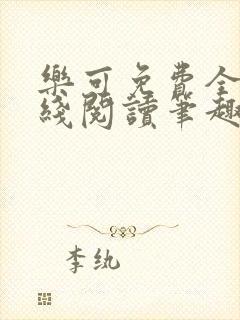 樂可免費全
綫閱讀筆趣
李纨